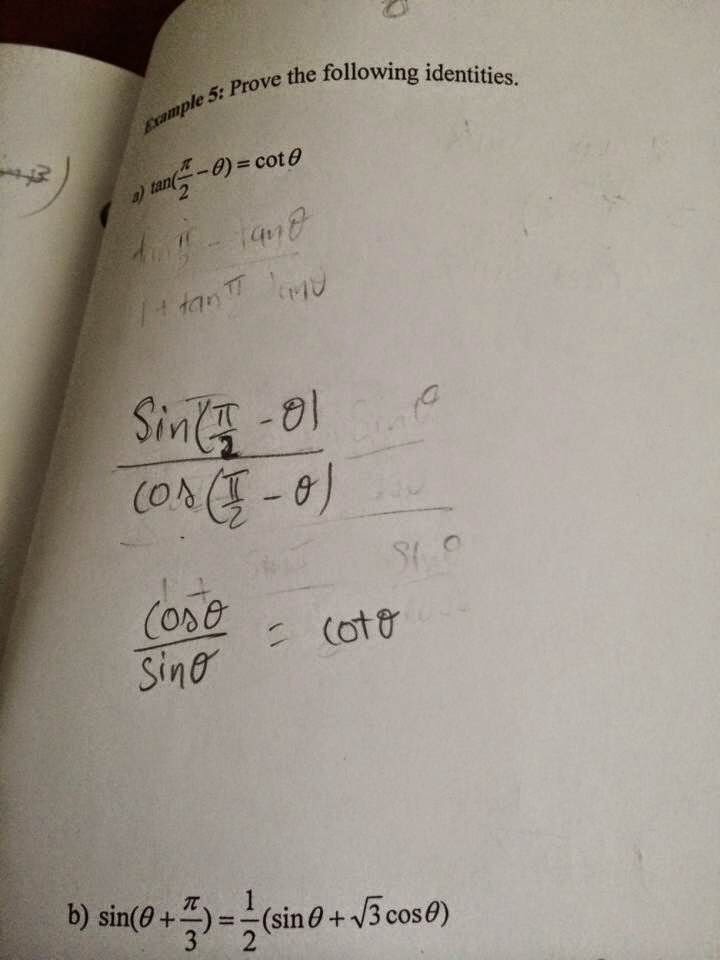 Example 5: Prove the following identities.
a) tan(π/2 − θ) = cot θ
tan π/2 − tan θ
1 + tan π tan θ
Sin(π/2 − θ)
cos(π/2 − θ)
cos θ / sin θ = cot θ
b) sin(θ + π/3) = 1/2 (sin θ + √3 cos θ)